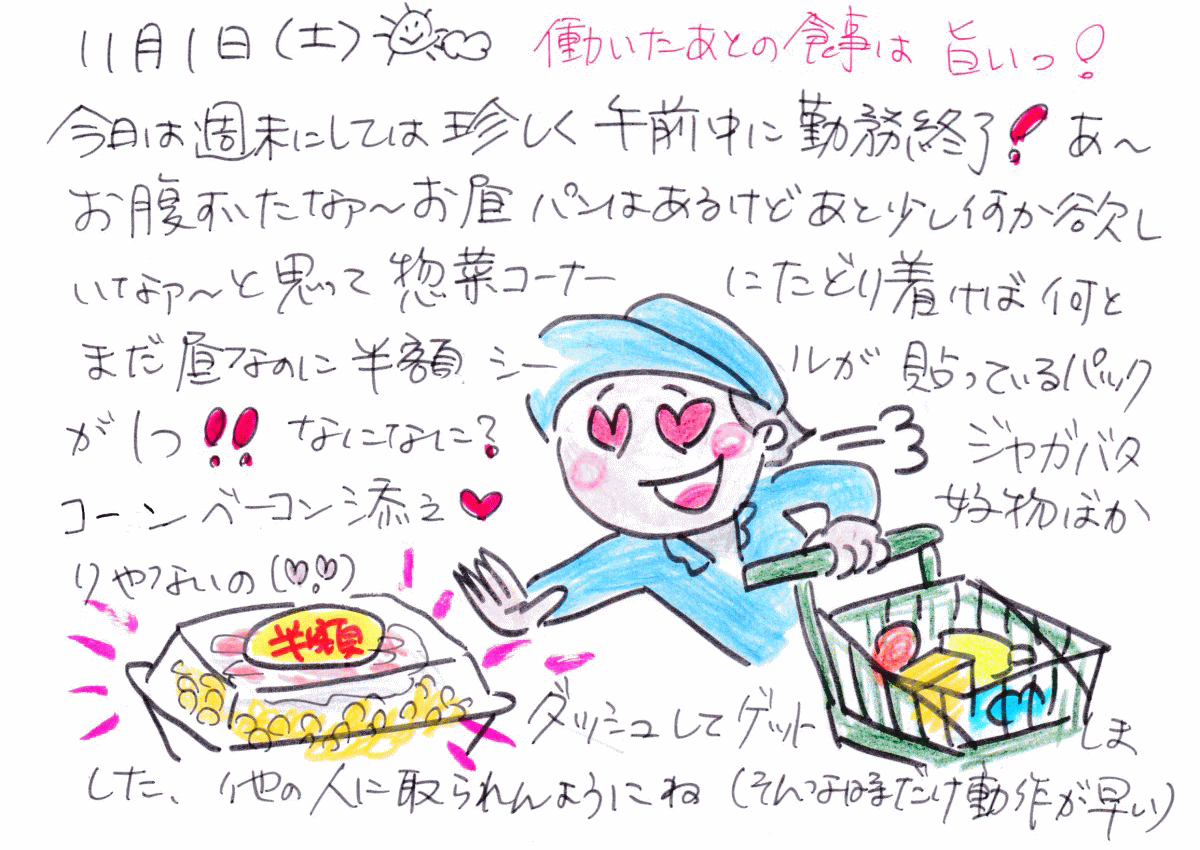 11月1日(土) 働いたあとの食事は 旨いっ!
今日は週末にしては珍しく午前中に勤務終了!あ〜
お腹すいたなァ〜お昼パンはあるけどあと少し何か欲し
いなァ〜と思って惣菜コーナーにたどり着けば何と
まだ昼なのに半額シールが貼っているパック
が1つ!!なになに?ジャガバタ
コーンベーコン添え♥好物ばか
りやないの(♥.♥)
半額
ダッシュしてゲットしま
した、他の人に取られんようにね(そんな時だけ動作が早い)